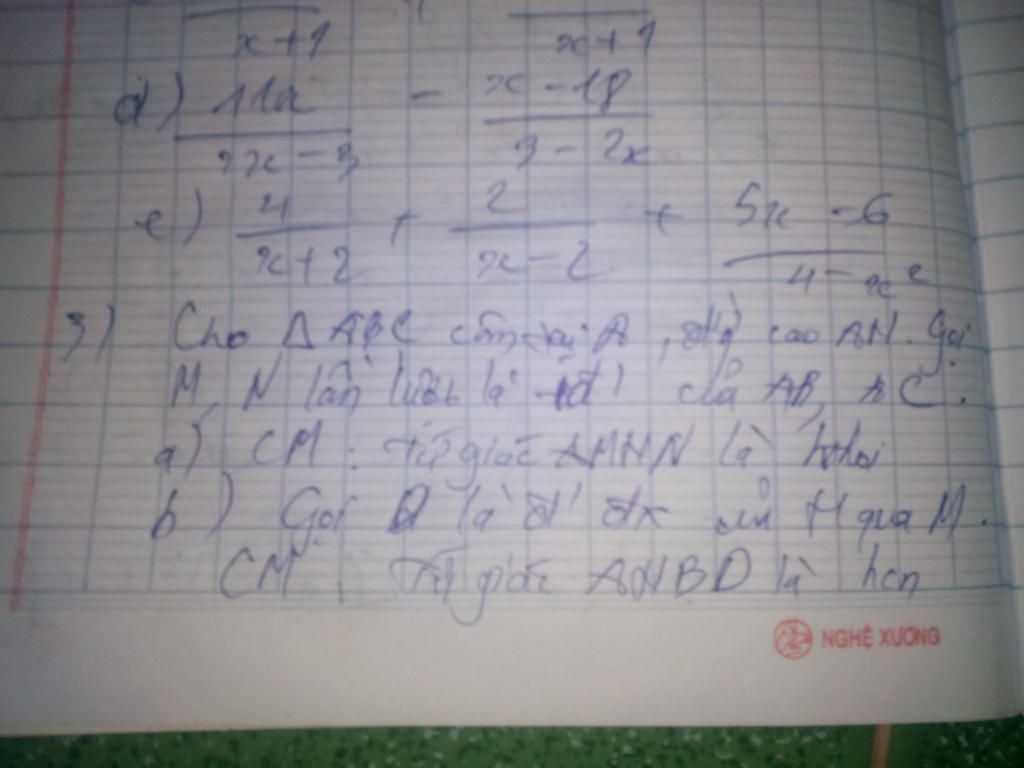 x+1 x+1
d) 11x/2x-3 - x-18/3-2x
e) 4/x+2 + 2/x-2 + 5x-6/4-x²
3) Cho ΔABC cân tại A, đg cao AH. Gọi
M, N lần lượt là tđ' của AB, AC.
a) CM: Tứ giác AMHN là hthoi
b) Gọi D là đ' đx của H qua M.
CM: Tứ giác AHBD là hcn
NGHỆ XƯƠNG